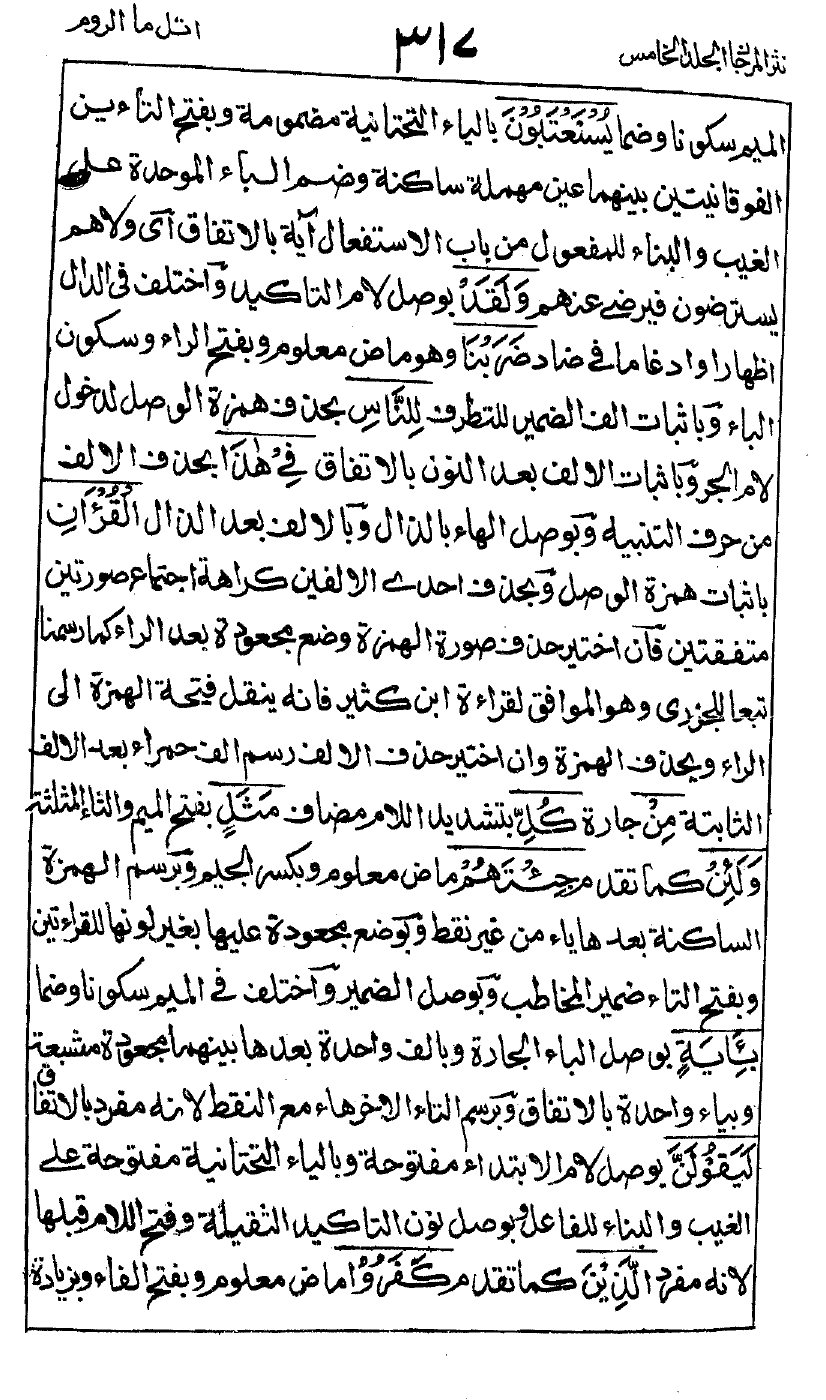 نثر المرجان الجلد الخامس
٣١٧
اتل ما الروم
الميم سكونا وضما يُسْتَعْتَبُوْنَ بالياء التحتانية مضمومة وبفتح التاءين
الفوقانيتين بينهما عين مهملة ساكنة وضم الباء الموحدة على
الغيب والبناء للمفعول من باب الاستفعال آية بالاتفاق آى ولاهم
يسترضون فيرضى عنهم وَلَقَدْ بوصل لام التاكيد وٓاختلف فى الدال
اظهارا وادغاما فى ضاد ضَرَبْنَا وهو ماض معلوم وبفتح الراء وسكون
الباء وٓباثبات الف الضمير للتطرف لِلنَّاسِ بحذف همزة الوصل لدخول
لام الجر وٓباثبات الالف بعد النون بالاتفاق فِيْ هٰذَا بحذف الالف
من حرف التنبيه وٓبوصل الهاء بالذال وٓبالالف بعد الذال الْقُرْاٰنِ
باثبات همزة الوصل وٓبحذف احدى الالفين كراهة اجتماع صورتين
متفقتين فٓان اختير حذف صورة الهمزة وضع مجعودة بعد الراء كما رسمنا
تبعا للجزرى وهو الموافق لقراءة ابن كثير فانه ينقل فتحة الهمزة الى
الراء ويحذف الهمزة وان اختير حذف الالف رسم الف حمراء بعد الالف
الثابتة مِنْ جارة كُلِّ بتشديد اللام مضاف مَثَلٍ بفتح الميم والثاء المثلثة
وَلَئِنْ كما تقدم جِئْتَهُمْ ماض معلوم وبكسر الجيم وٓبرسم الهمزة
الساكنة بعدها ياء من غير نقط وٓبوضع مجعودة عليها بغير لونها للقراءتين
وبفتح التاء ضمير المخاطب وٓبوصل الضمير وٓاختلف فى الميم سكونا وضما
بِـَٔايَةٍ بوصل الباء الجارة وبالف واحدة بعدها بينهما مجعودة مشبعة
وبياء واحدة بالاتفاق وٓبرسم التاء الاخر هاء مع النقط لانه مفرد بالاتفاق
لَيَقُوْلَنَّ بوصل لام الابتداء مفتوحة وبالياء التحتانية مفتوحة على
الغيب والبناء للفاعل وبوصل نون التاكيد الثقيلة وفتح اللام قبلها
لانه مفرد الَّذِيْنَ كما تقدم كَفَرُوْٓا ماض معلوم وبفتح الفاء وبزيادة